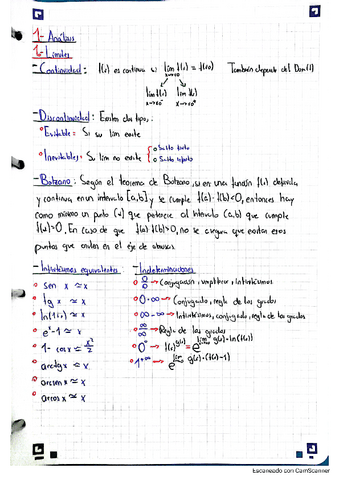 1- Análisis
1- Límites
- Continuidad: f(x) es continua si lim x→x0 f(x) = f(x0) También depende del Dom(f)
lim x→x0⁻ f(x) lim x→x0⁺ f(x)
- Discontinuidad: Existen dos tipos,:
Evitable: Si su lim existe
Inevitable: Su lim no existe { Salto finito
Salto infinito
- Bolzano: Según el teorema de Bolzano, si en una función f(x) definida
y continua, en un intervalo [a,b] y se cumple f(a)·f(b)<0, entonces hay
como mínimo un punto (x) que pertenece al intervalo (a,b) que cumple
f(x)=0. En caso de que f(a)·f(b)>0, no se asegura que existan esos
puntos que existen en el eje de abscisas.
- Infinitésimos equivalentes: - Indeterminaciones
sen x ≃ x
tg x ≃ x
ln(1+x) ≃ x
eˣ-1 ≃ x
1- cos x ≃ x²/2
arctg x ≃ x
arcsen x ≃ x
arcos x ≃ x
0/0 → Conjugación, simplificar, infinitésimos
0·∞ → Conjugado, regla de los grados
∞-∞ → Infinitésimos, conjugado, regla de los grados
∞/∞ → Regla de los grados
0⁰ → f(x)^g(x) = e^(lim g(x)·ln(f(x)))
1^±∞ → e^(lim g(x)·(f(x)-1))
Escaneado con CamScanner